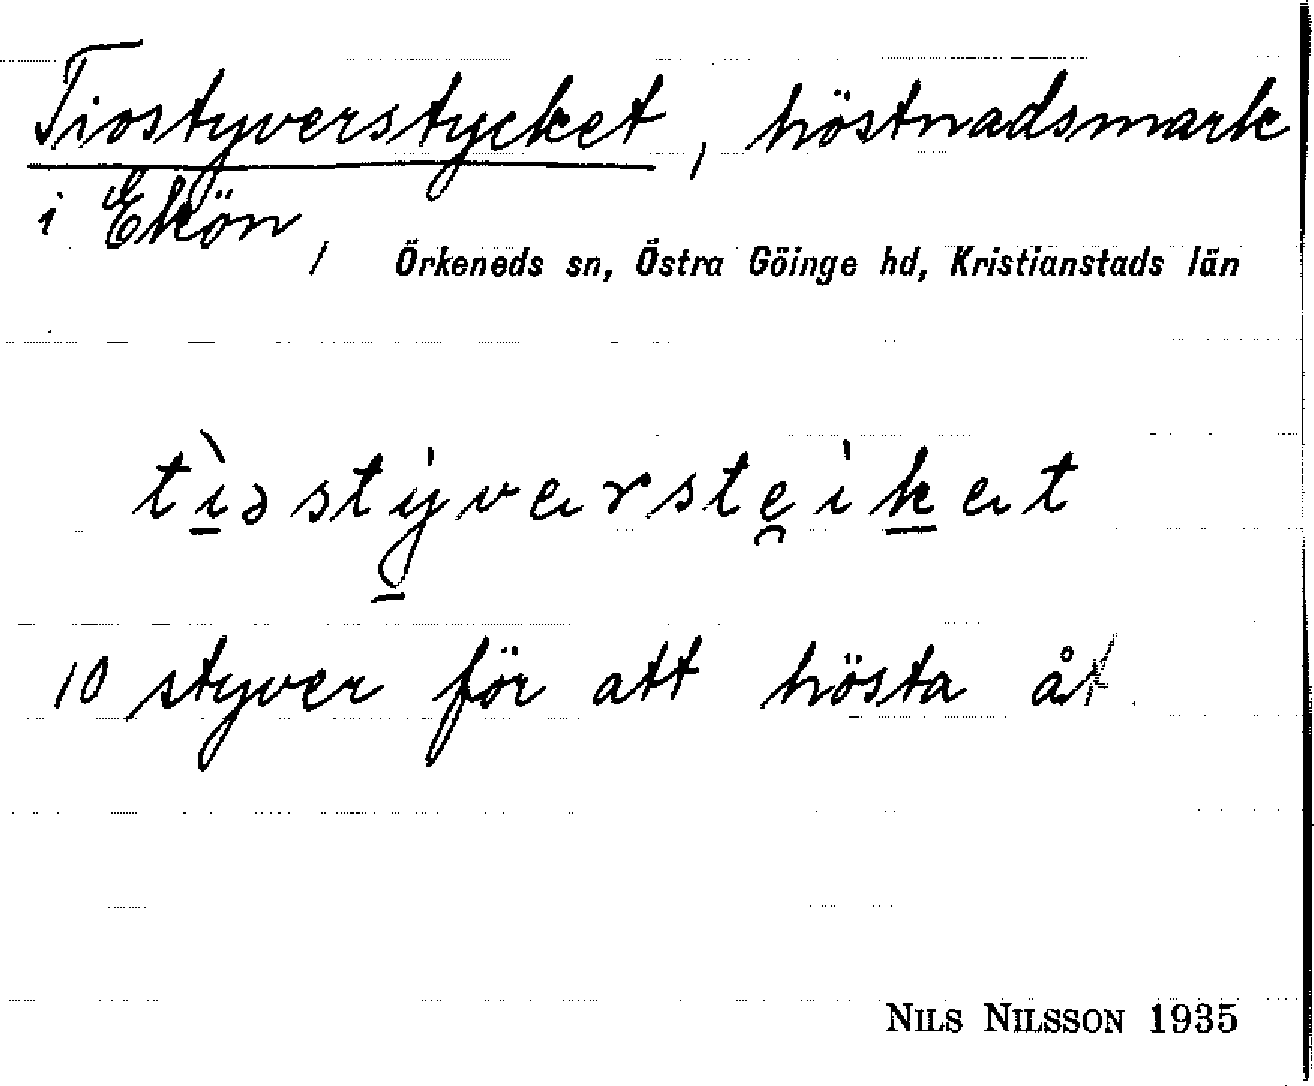 Tiostyverstycket, höstnadsmark
i Ekön, Örkeneds sn, Östra Göinge hd, Kristianstads län
10 styver för att hösta
NILS NILSSON 1935